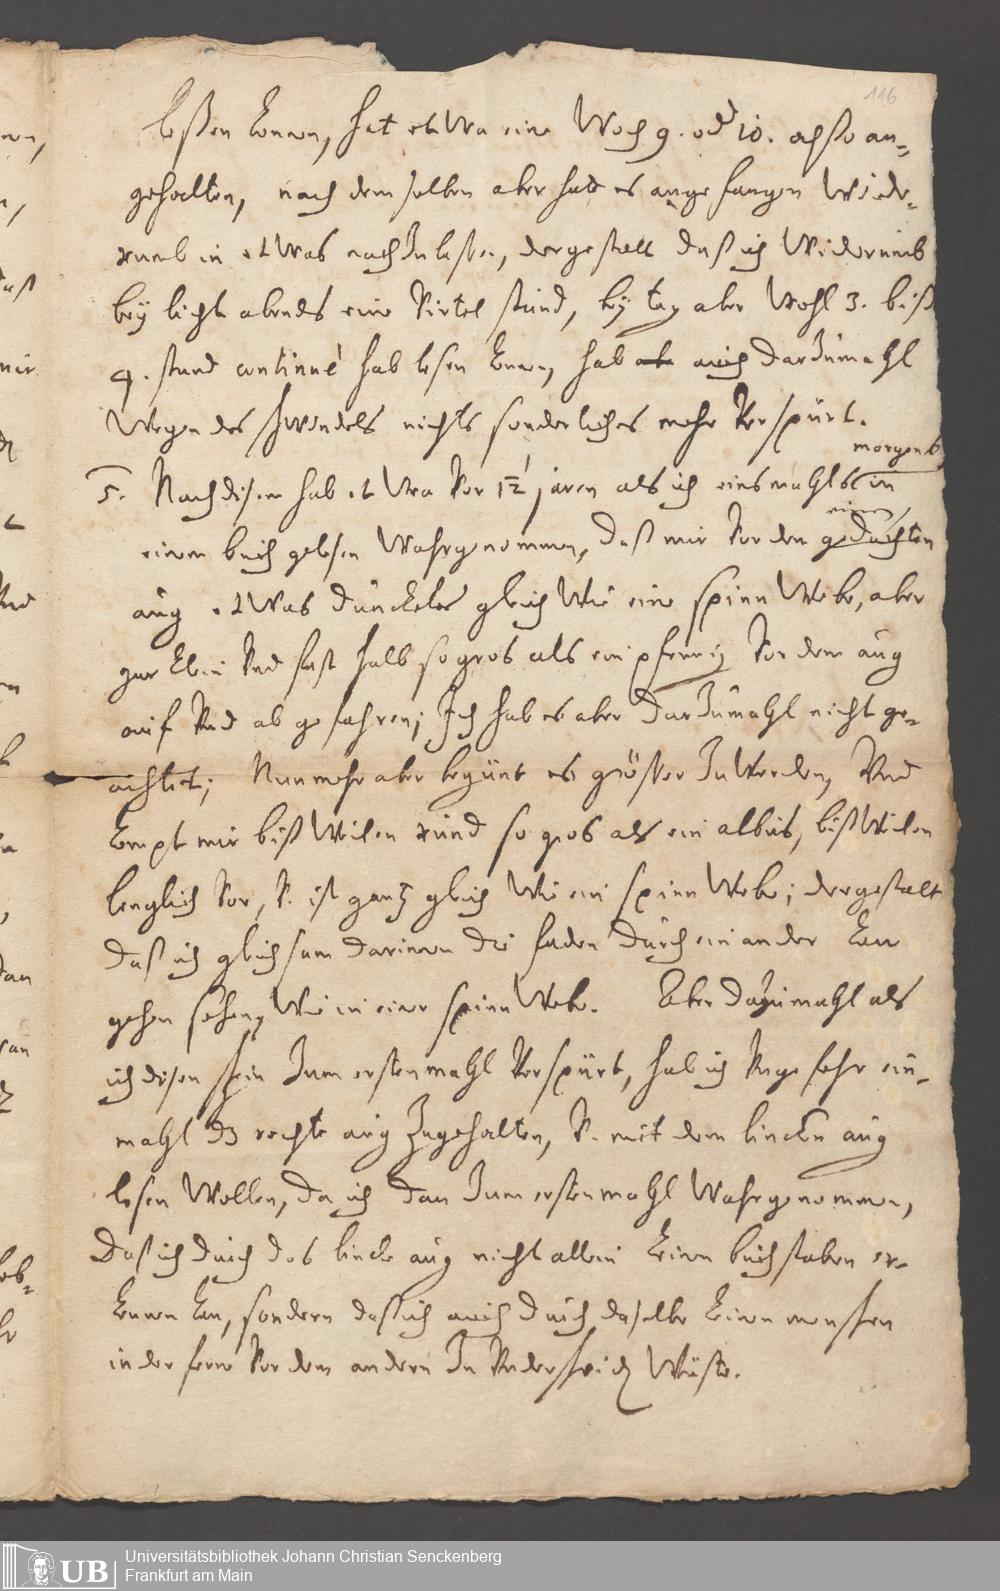 116
leßen können, hat etwa eine Woch 9. od 10. also an-
gehalten, nach dem selben aber hatt es angefangen wide-
rumb in etwas nach Zulaßen, dergestalt daß ich widerumb
bey licht abends eine virtel stund, bey tag aber wohl 3. biß
4. stund continué hab lesen können, hab auch darzumahl
wegen des schwindels nichts sonderliches mehr verspürt.
5. Nach disem hab etwa vor 1½ jaren als ich einsmahls morgends in
einem buch gelesen wahrgenommen, daß mir vor dem gedachten
aug etwas dunckeles gleich wie eine spinn webe, aber
gar klein vnd fast halb so gros als ein pfennig vor dem aug
auf vnd ab gefahren; Ich hab es aber darzumahl nicht ge-
achtet; Nunmehr aber begünt es größer zu werden, vnd
kompt mir bißweilen rund so gros als ein albus, bißweilen
lenglich vor, v. ist gantz gleich wie ein spinn webe; dergestalt
daß ich gleichsam darinnen die faden durch einander kan
gehen sehen, wie in einer spinn webe. Aber dazumahl als
ich disen schein zum erstenmahl verspürt, hab ich vngefehr ein-
mahl dz rechte aug zugehalten, v. mit dem lincken aug
lesen wollen, da ich dan zum erstenmahl wahrgenommen,
daß ich durch das lincke aug nicht allein keinen buchstaben er-
kennen kan, sondern daß ich auch durch daselbe keinen menschen
in der ferne vor dem andern zu vnderscheiden wüste.
Universitätsbibliothek Johann Christian Senckenberg
Frankfurt am Main
UB